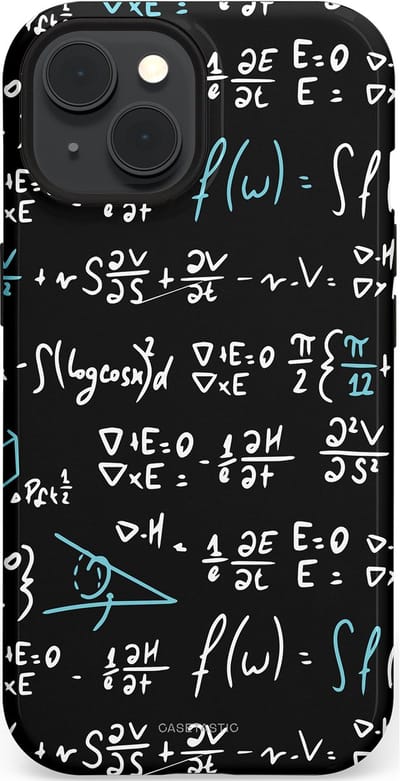 ∇×E =
1/e ∂E/∂t E=0 ∇·
E = ∇×
+E=0
×E
e ∂t
f(ω) = ∫f
V/2 + r S ∂V/∂S + ∂V/∂t - r.V = ∇·H
∇×
- ∫(log cosx)²d ∇+E=0 π/2 { π/12 +
∇×E
∇+E=0 - 1/e ∂H/∂t ∂²V/∂S²
∇×E =
∇·H = 1/e ∂E/∂t E=0 ∇·
E = ∇×
+E=0 - 1/e ∂H/∂t f(ω) = ∫f
×E
CASETASTIC
+ r S ∂V/∂S + ∂V/∂t - r.V = ∇·H